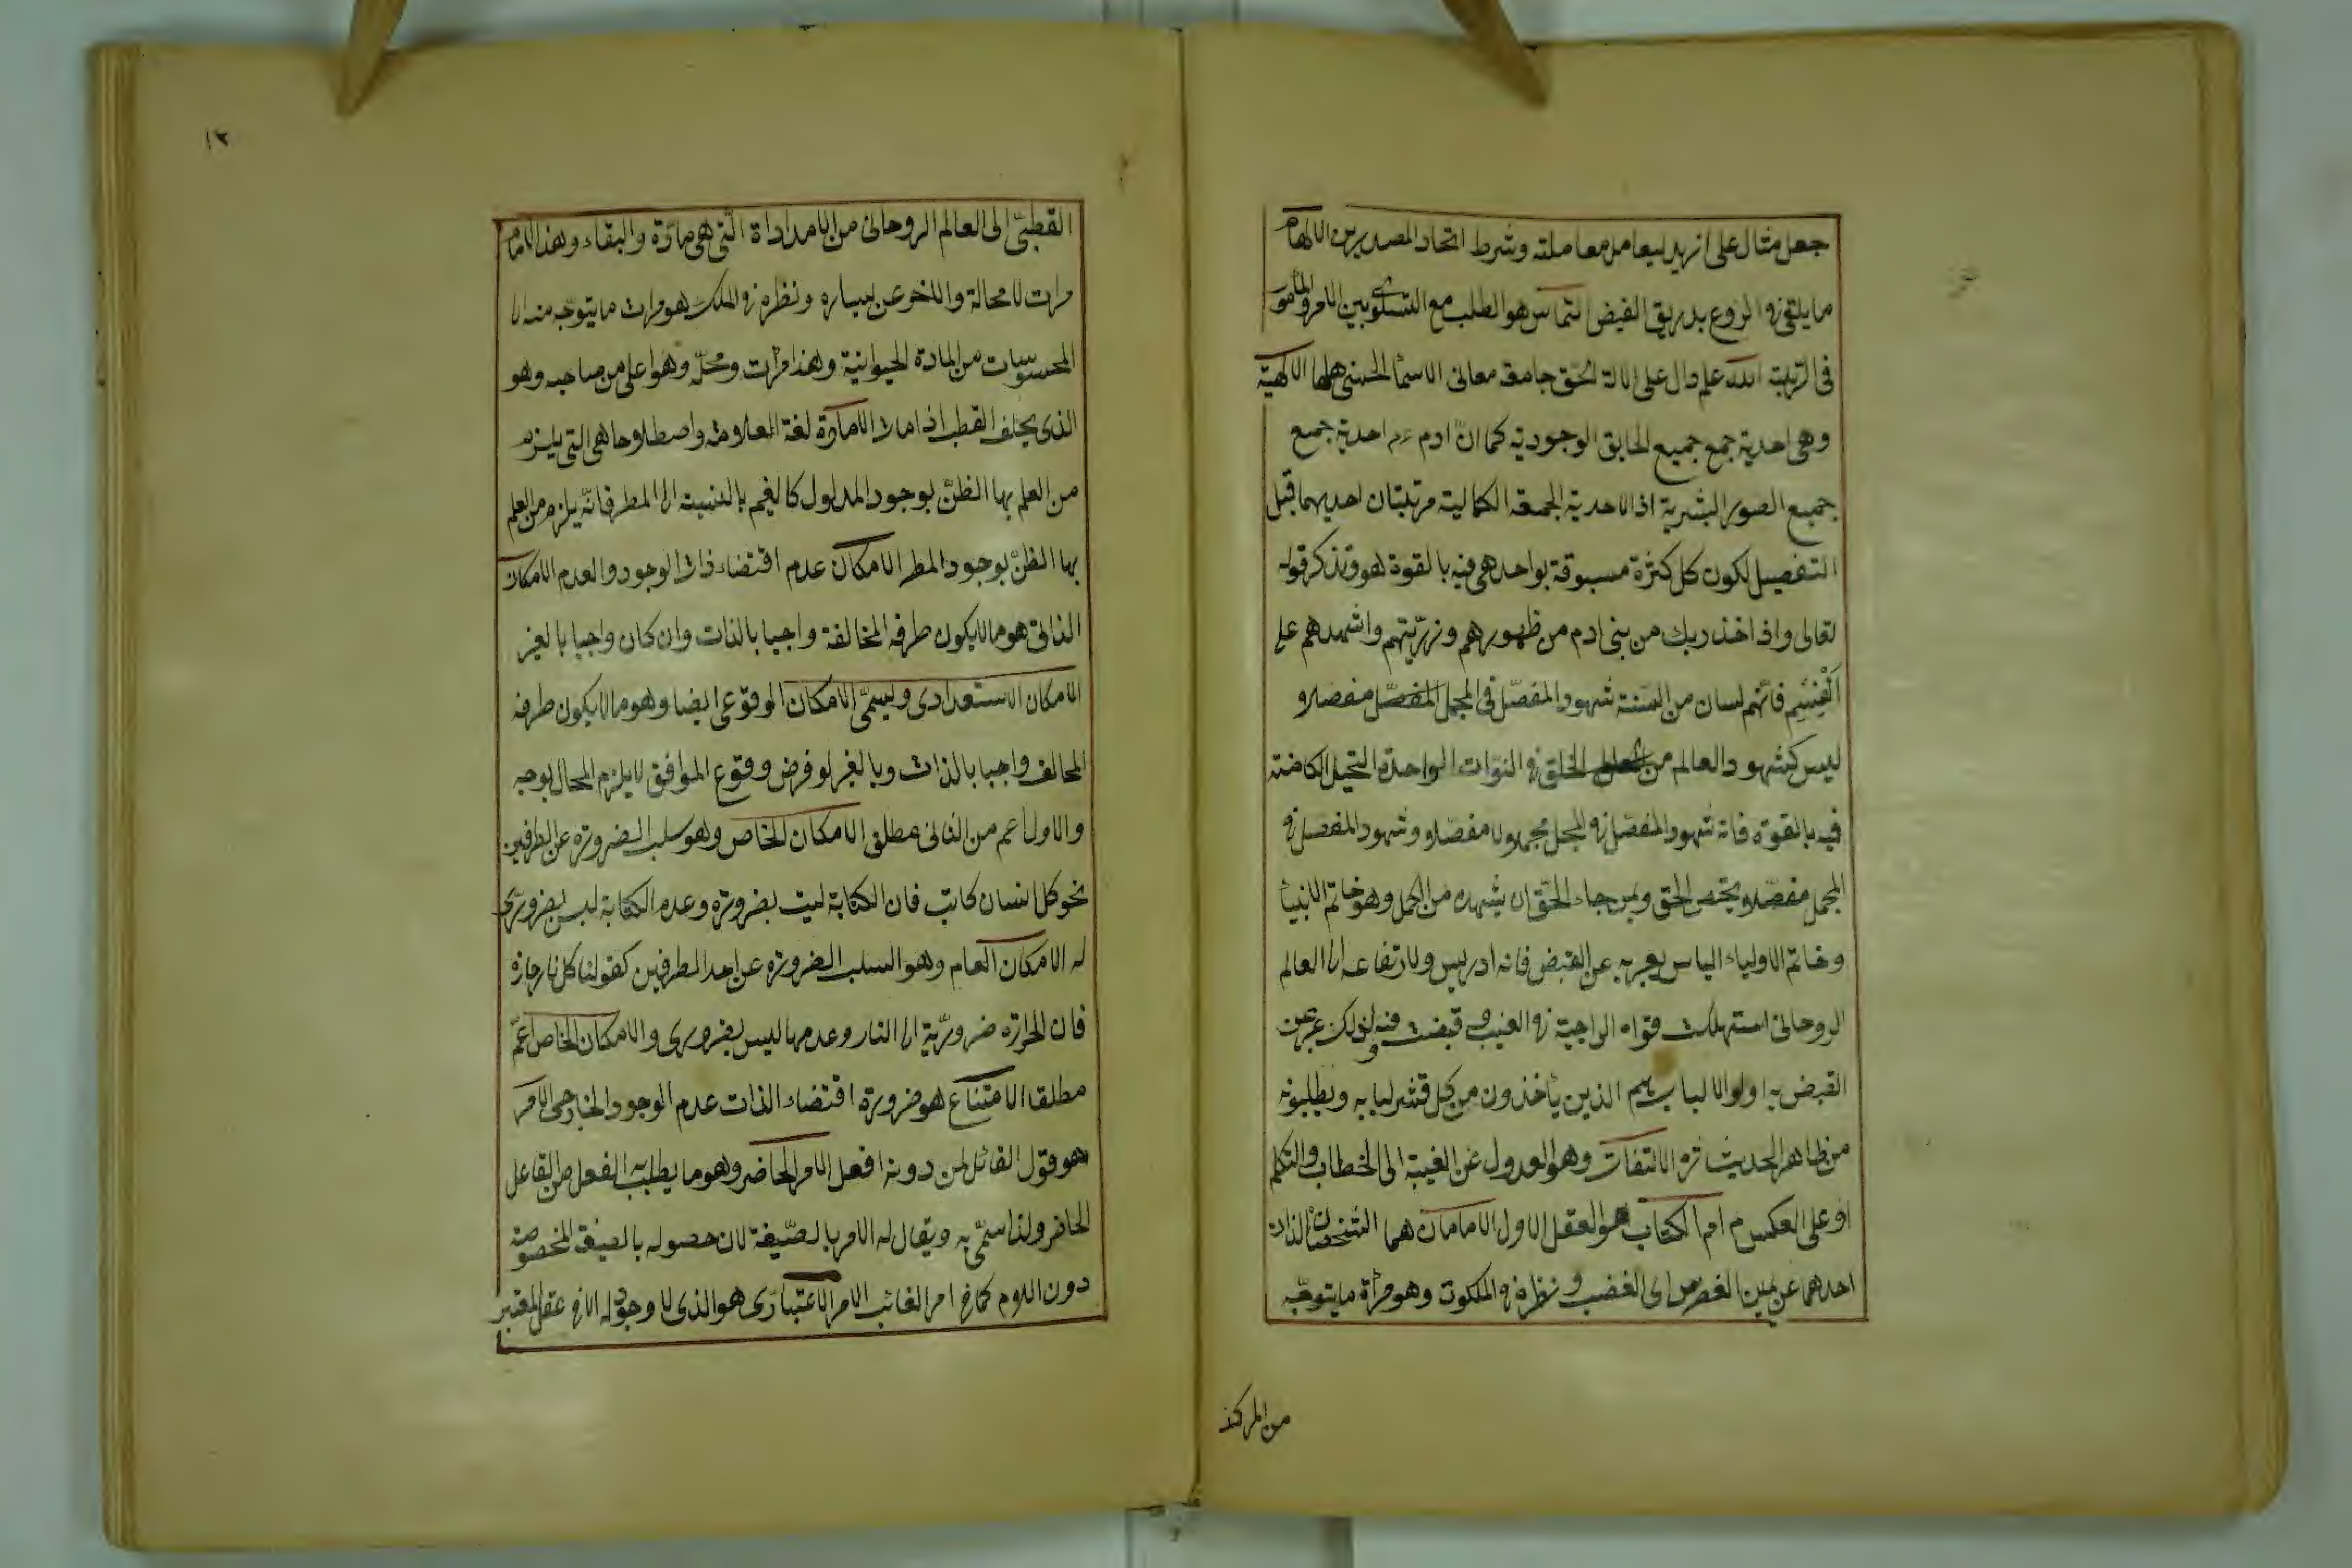 جعل مثال على ان يد ليعامل معاملته وشرط اتحاد المصدرين الالهام
ما يلقى فى الروع بطريق الفيض التماس هو الطلب مع التساوى بين الامر والمأمور
فى الرتبة الله علم دال على الاله الحق جامعة معانى الاسماء الحسنى كلها الالهية
وهى احدية جمع جميع الحايق الوجودية كما ان ادم ءم احدية جمع
جميع الصور البشرية اذ الاحدية الجمعة الكمالية مرتبتان احديهما قبل
التفصيل لكون كل كثرة مسبوقة بواحد هى فيه بالقوة هو وتذكر قوله
تعالى واذ اخذ ربك من بنى ادم من ظهورهم وذريتهم واشهدهم على
انفسهم فانهم لسان من السنة شهود المفصل فى المجمل المفصل مفصلا و
ليس كشهود العالم من الخلق فى النوات الواحدة النخيل الكامنة
فيه بالقوة فانه شهود المفصل فى المجمل مجملا لا مفصلا وشهود المفصل فى
المجمل مفصلا ويختص الحق وبمن جاء الحق ان يشهده من الكمل وهو خاتم الانبيأ
وخاتم الاولياء الياس يعبر به عن القبض فانه ادريس ولارتفاعه الى العالم
الروحانى استهلكت قواه المزاجية فى الغيب و قبضت فيه ولذلك عبر عن
القبض به اولو الالباب هم الذين يأخذون من كل قشر لبابه ويطلبونه
من ظاهر الحديث سره الالتفات وهو العدول عن الغيبة الى الخطاب والتكلم
او على العكس م ام الكتاب هو العقل الاول الامامان هما الشخصان اللذان
احدهما عن يمين الغوث اى الغضب و نظره فى الملكوت وهو مرآة ما يتوجه
من المركز
١٢
القطبى الى العالم الروحانى من الامدادات التى هى مادة والبقاء وهذا الامام
مرات لا محالة والاخر عن يساره ونظره فى الملك هو مرات ما يتوجه منه الى
المحسوسات من المادة الحيوانية وهذا مرات ومحله وهو اعلى من صاحبه وهو
الذى يخلف القطب اذا مات الامارة لغة العلامة واصطلاحا هى التى يلزم
من العلم بها الظن بوجود المدلول كالغيم بالنسبة الى المطر فانه يلزم من العلم
بها الظن بوجود المطر الامكان عدم اقتضاء ذات الوجود والعدم الامكان
الذاتى هو ما لا يكون طرفه المخالفة واجبا بالذات وان كان واجبا بالغير
الامكان الاستعدادى ويسمى الامكان الوقوعى ايضا وهو ما لا يكون طرفه
المخالف واجبا بالذات وبالغير لو فرض وقوع الموافق لا يلزم المحال بوجه
والاول اعم من الثانى مطلق الامكان الخاص وهو سلب الضرورة عن الطرفين
نحو كل انسان كاتب فان الكتابة ليت بضرورة وعدم الكتابة ليس بضرورى
له الامكان العام وهو السلب الضرورة عن احد الطرفين كقولنا كل نار حارة
فان الحرارة ضرورية الى النار وعدمها ليس بضرورى والامكان الخاص اعم
مطلقا الامتناع هو ضرورة اقتضاء الذات عدم الوجود الخارجى الامر
هو قول القائل لمن دونه افعل الامر الحاضر وهو ما يطلب به الفعل من الفاعل
الحاضر ولذا سمى به ويقال له الامر بالصيغة لان حصوله بالصيغة المخصوصة
دون اللام كما فى امر الغائب الامر الاعتبارى هو الذى لا وجود له الا فى عقل المعتبر